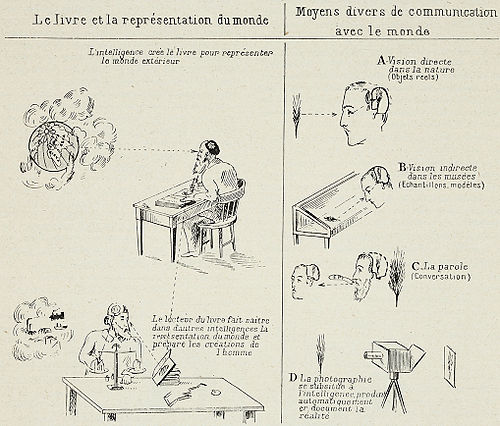 Le livre et la représentation du monde
L'intelligence crée le livre pour représenter
le monde extérieur
Le lecteur du livre fait naître
dans d'autres intelligences la
représentation du monde et
prépare les créations de
l'homme
Moyens divers de communication
avec le monde
A-Vision directe
dans la nature
(Objets réels)
B-Vision indirecte
dans les musées
(Echantillons, modèles)
C. La parole
(Conversation)
D La photographie
se substitue à
l'intelligence, produit
automatiquement
un document la
réalité